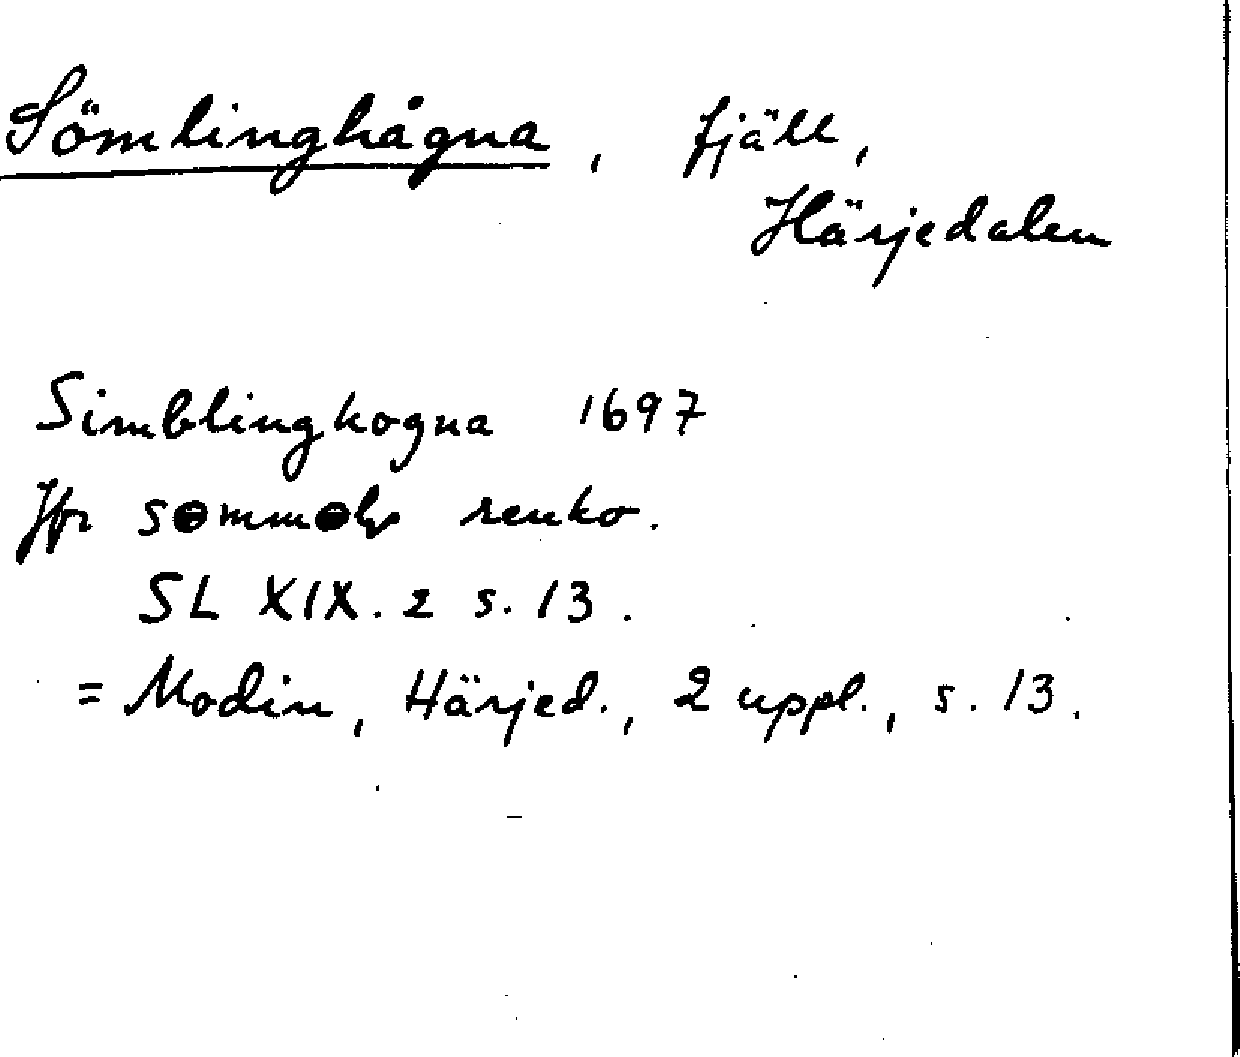 Sömlinghågna, fjäll,
Härjedalen
Simblinghogna 1697
Jfr renko.
SL XIX. 2 s. 13.
= Modin, Härjed., 2 uppl., s. 13.